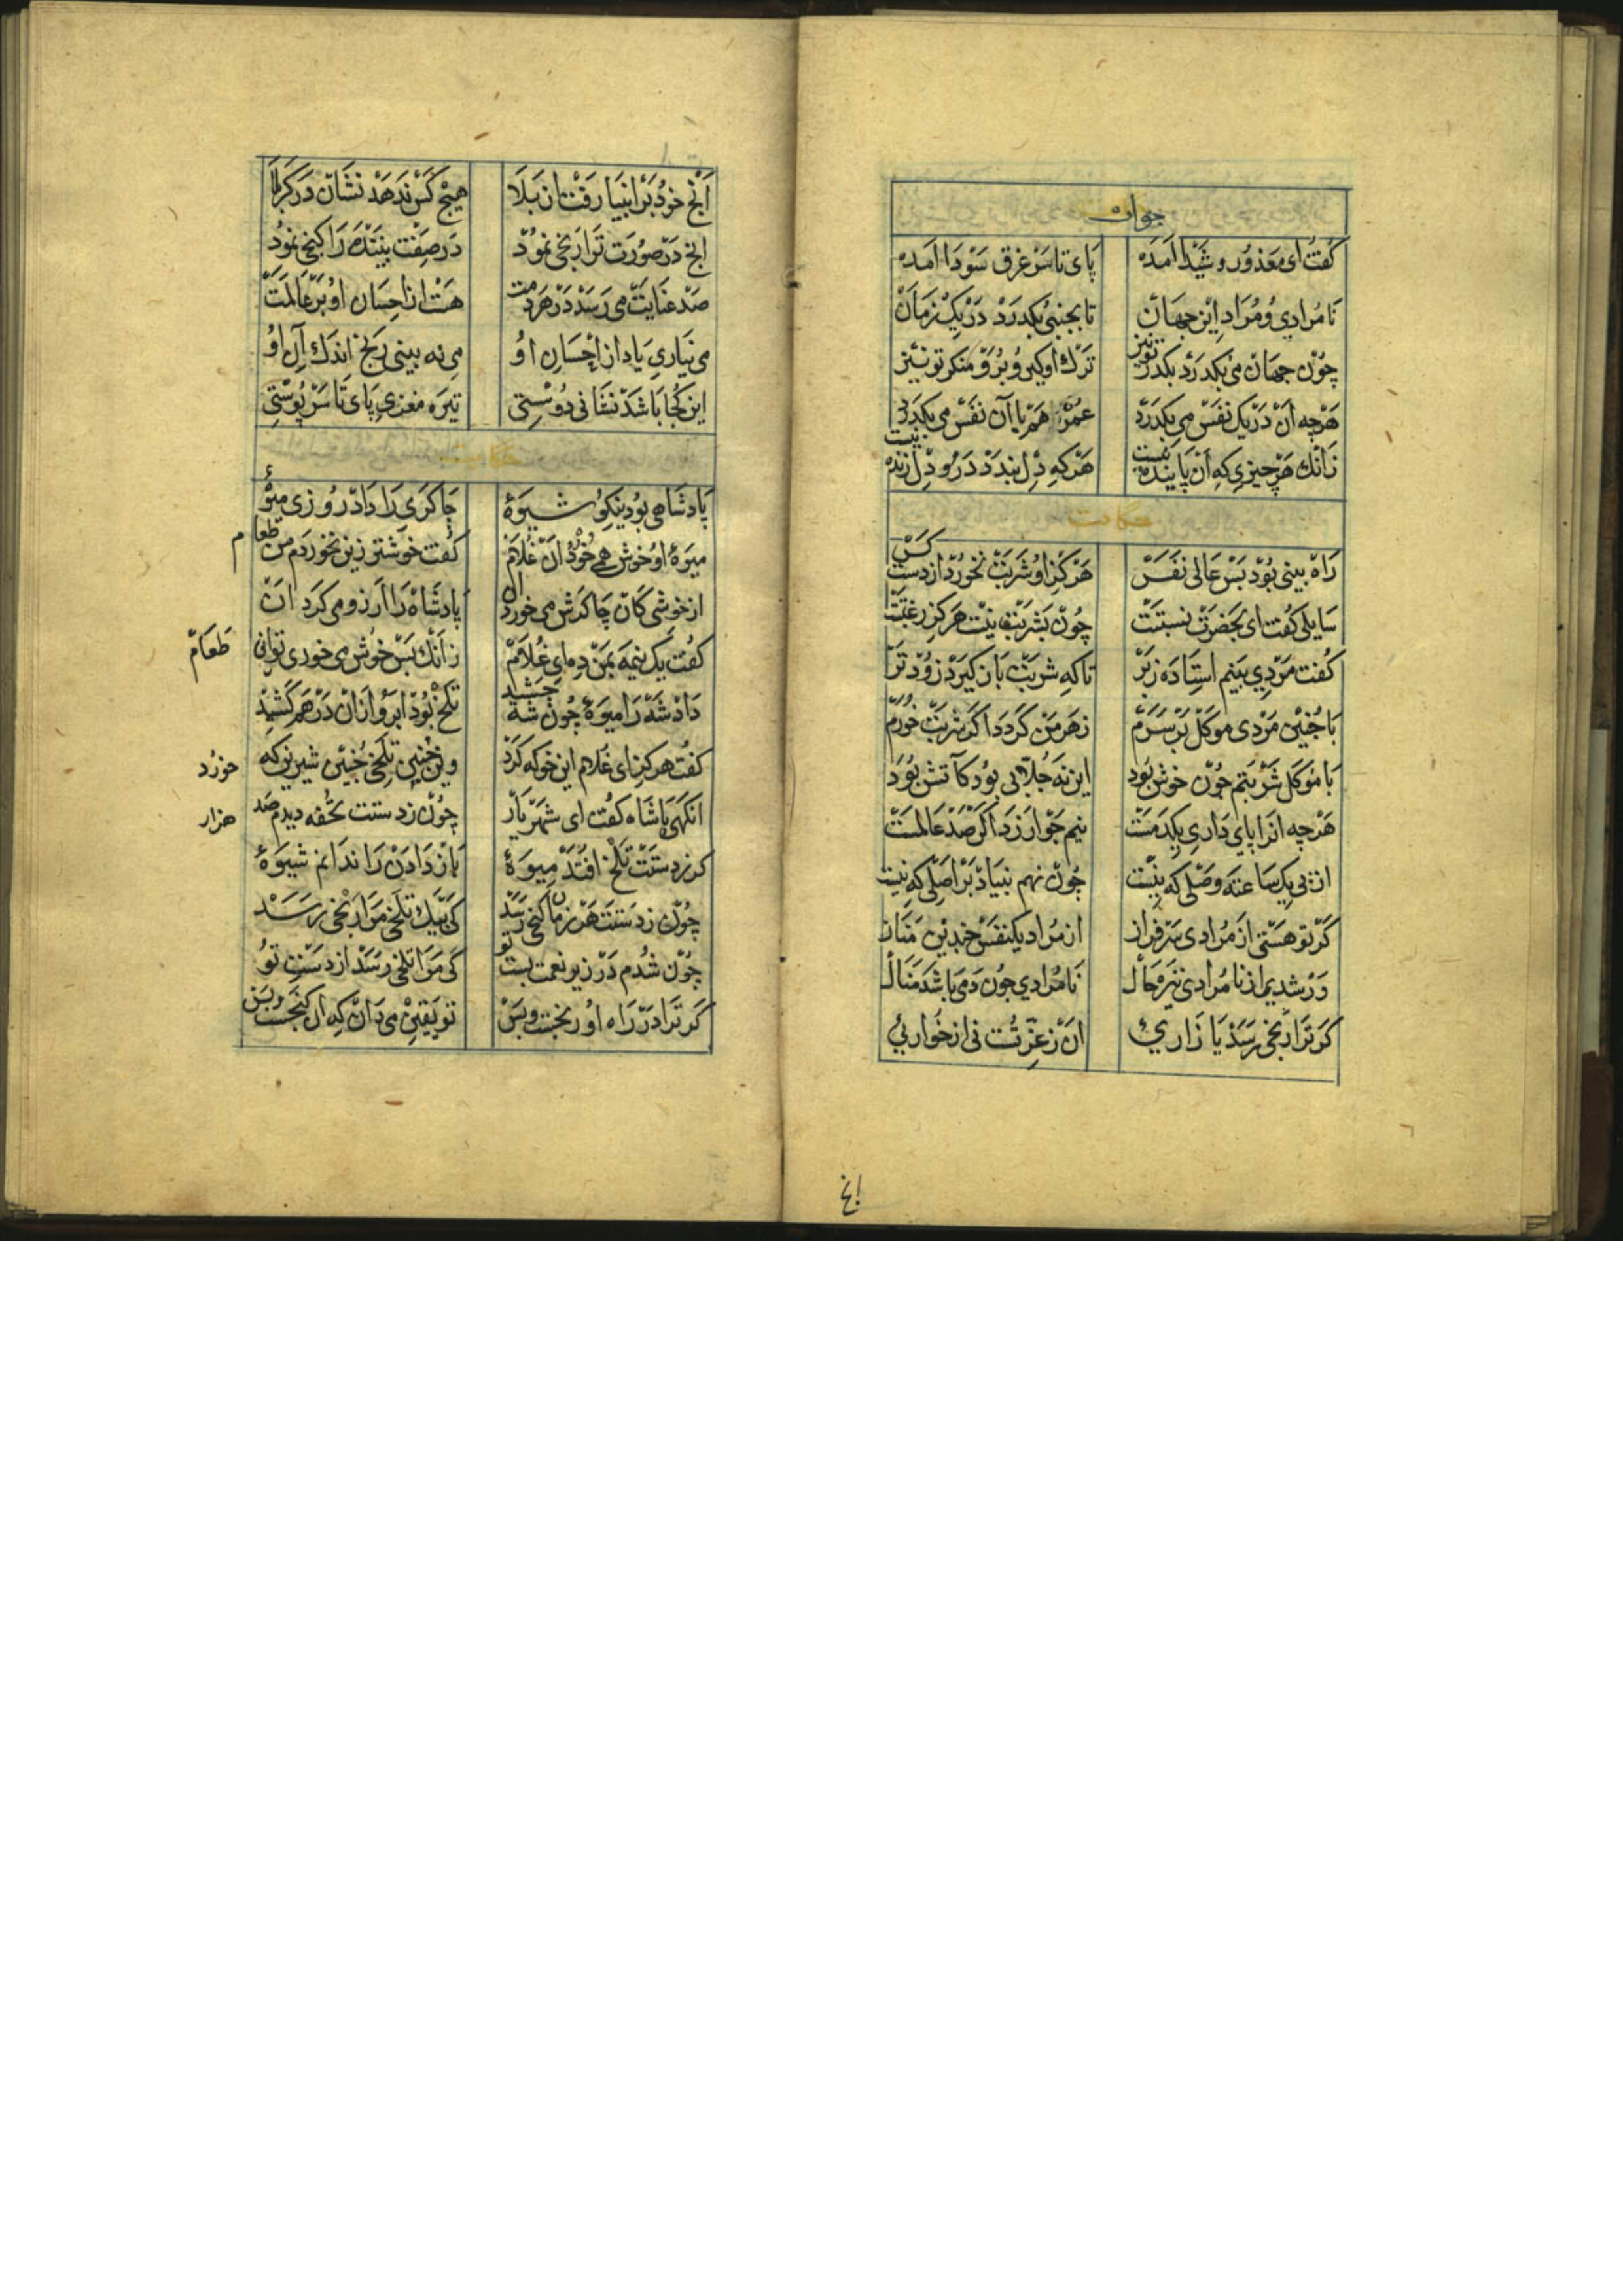 جوان
كفت ای معذور و شیدا آمده پای تا سر غرق سودا آمده
نامرادی و مراد این جهان تا بجنبی بکذرد در یک زمان
چون جهان می بکذرد بکذر تو نیز ترک او کیر و برو منکر تو نیز
هرچه آن در یک نفس می بکذرد عمر هم با آن نفس می بکذرد
زانک هر چیزی که آن پاینده نیست هرکه دل بندد درو دل زنده نیست
حکایت
راه بینی بود بس عالی نفس هرکز او شربت نخورد از دست کس
سایلی کفت ای بحضرت نسبتت چون بشربت نیست هرکز رغبتت
کفت مردی بینم استاده زبر تا که شربت باز کیرد زودتر
با چنین مردی موکل بر سرم زهر من کردد اکر شربت خورم
با موکل شربتم چون خوش بود این نه جلابی بود کآتش بود
هرچه انرا پای داری یکدمست نیم جو ارزد اکر صد عالمست
از پی یک ساعته وصلی که نیست چون نهم بنیاد بر اصلی که نیست
کر تو هستی از مرادی سرفراز از مراد یکنفس چندین مناز
ور شدی از نامرادی تیره حال نامرادی چون دمی باشد منال
کر ترا رنجی رسد یا زاریئ ان ز عزتست نی از خواریئ
انج
آنج خود بر انبیا رفت از بلا هیچ کس ندهد نشان در کربلا
انج در صورت ترا رنجی نمود در صفت بیننده را کنجی نمود
صد عنایت می رسد در هر دمت هست از احسان او بر عالمت
می نیاری یاد از احسان او می نه بینی رنج اندک آن او
این کجا باشد نشانی دوستی تیره مغزی پای تا سر پوستی
حکایت
پادشاهی بود نیکو شیوهٔ چاکری را داد روزی میوهٔ
میوهٔ او خوش همی خورد آن غلام کفت خوشتر زین نخوردم من طعام
از خوشی کان چاکرش می خورد ان پادشاه را آرزو می کرد ان
کفت یک نیمه بمن ده ای غلام زانک بس خوش می خوری توانی طعام
داد شه را میوهٔ چون شه چشید تلخ بود ابرو ازان درهم کشید
کفت هرکز ای غلام این خو که کرد وین چنین تلخی چنین شیرین که خورد
انکهی باشاه کفت ای شهریار چون زدستت تحفه دیدم صد هزار
کر زدستت تلخ افتد میوهٔ باز دادن را ندانم شیوهٔ
چون زدستت هر زمان کنجی رسد کی بیک تلخی مرا رنجی رسد
چون شدم در زیر نعمت پست تو کی مرا تلخی رسد از دست تو
کر ترا در راه او رنجست و بس تو یقین می دان که ان کنجست و بس